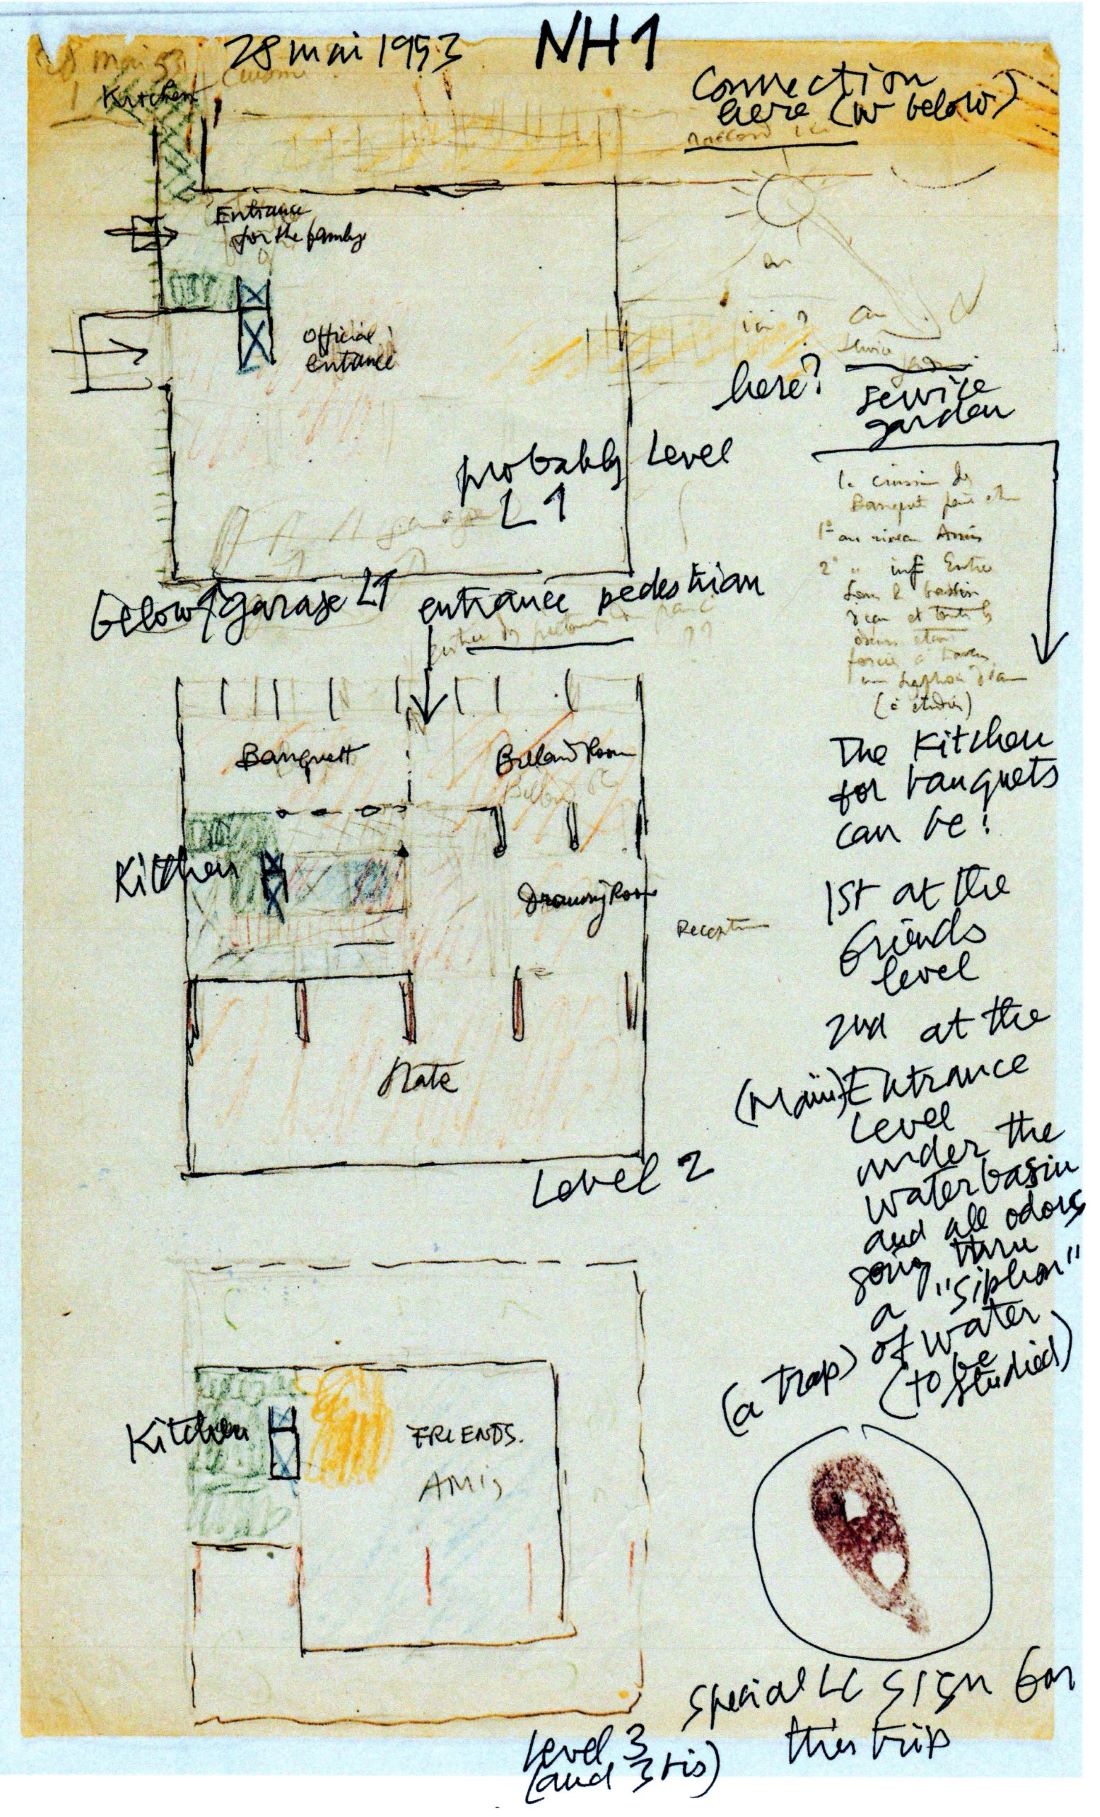 28 mai 1953 NH1
28 mai 53
1
Cuisine
Kitchen
Connection
here (or below)
Raccord ici
Entrance
for the family
ou
ici ?
ou
service
Official
entrance
here?
service
garden
probably Level
L1
garage
la cuisine des
Banquet peut être
1° au niveau Amis
2° " inf Entrée
sous le bassin
d'eau et toutes les
odeurs étant
forcées à travers
un siphon d'eau
(à étudier)
below garage L1 entrance pedestrian
??
Banquett
Billard Room
Billard
The Kitchen
for banquets
can be:
Kitchen
Drawing Room
Reception
1st at the
friends
level
2nd at the
(Main) Entrance
Level
under the
waterbasin
and all odors
going thru
a "siphon"
of water
(a trap)
(to be
studied)
State
Level 2
Kitchen
FRIENDS.
AMIS
special LC sign for
this trip
Level 3
(and 3 bis)